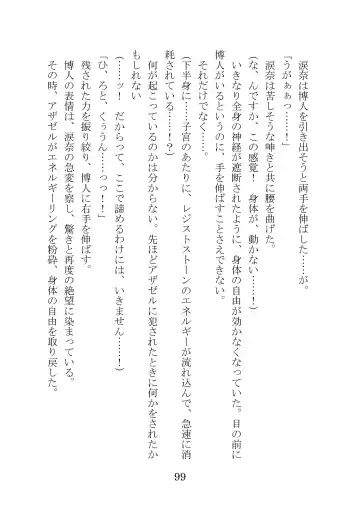 涙奈は博人を引き出そうと両手を伸ばした……が。
「うがぁぁっ……！」
涙奈は苦しそうな呻きと共に腰を曲げた。
(な、んですか、この感覚！　身体が、動かない……！)
いきなり全身の神経が遮断されたように、身体の自由が効かなくなっていた。目の前に
博人がいるというのに、手を伸ばすことさえできない。
それだけでなく……。
(下半身に……子宮のあたりに、レジストストーンのエネルギーが流れ込んで、急速に消
耗されている……！？)
何が起こっているのかは分からない。先ほどアザゼルに犯されたときに何かをされたか
もしれない
(……ッ！　だからって、ここで諦めるわけには、いきません……！)
「ひ、ろと、くぅうん……っっ！！」
残された力を振り絞り、博人に右手を伸ばす。
博人の表情は、涙奈の急変を察し、驚きと再度の絶望に染まっている。
その時、アザゼルがエネルギーリングを粉砕、身体の自由を取り戻した。
99